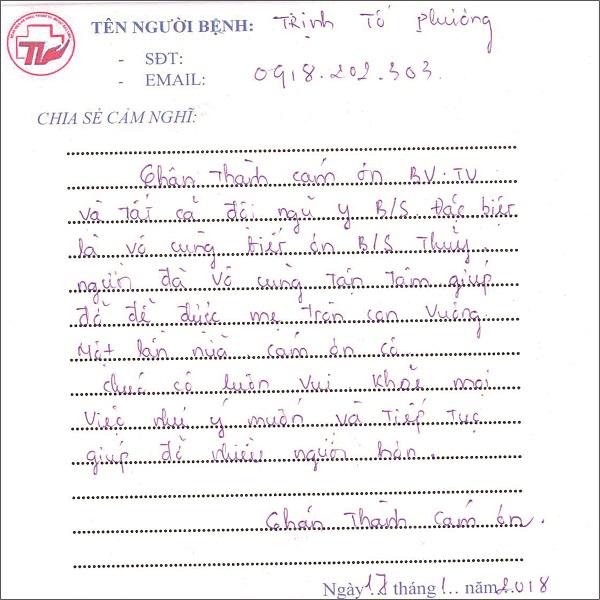 TV
TÊN NGƯỜI BỆNH: Trịnh Tố Phương
- SĐT:
- EMAIL: 0918.202.303.
CHIA SẺ CẢM NGHĨ:
Chân thành cám ơn BV. TV
và tất cả đội ngũ y B/S. Đặc biệt
là vô cùng biết ơn B/S Thủy.
người đã vô cùng tận tâm giúp
đỡ để được mẹ tròn con vuông
Một lần nữa cám ơn cô
chúc cô luôn vui khoẻ mọi
việc như ý muốn và tiếp tục
giúp đỡ nhiều người hơn.
Chân thành cám ơn.
Ngày 17 tháng 1.. năm 2018